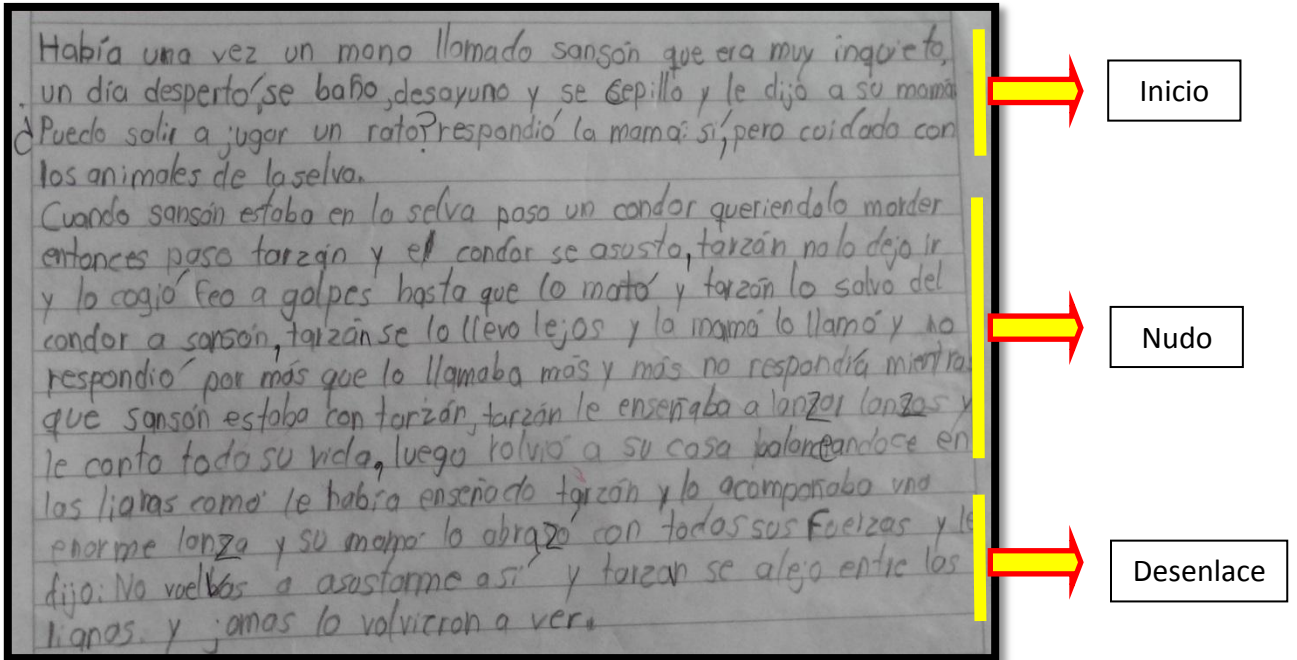 Había una vez un mono llamado sansón que era muy inquieto,
un día desperto, se baño, desayuno y se cepillo y le dijo a su mamá
¿Puedo salir a jugar un rato? respondió la mama: sí, pero cuidado con
los animales de la selva.
Cuando sansón estaba en la selva paso un condor queriendolo morder
entonces paso tarzán y el condor se asusto, tarzán no lo dejo ir
y lo cogió feo a golpes hasta que lo mató y tarzán lo salvo del
condor a sansón, tarzán se lo llevo lejos y la mamá lo llamó y no
respondio por más que lo llamaba más y más no respondía mientra
que sansón estaba con tarzán, tarzán le enseñaba a lanzar lanzas y
le conto toda su vida, luego volvio a su casa balanceandoce en
las lianas como le había enseñado tarzán y lo acompañaba una
enorme lanza y su mamá lo abrazó con todas sus fuerzas y le
dijo: No vuelvas a asustarme así y tarzan se alejo entre las
lianas. y jamas lo volvieron a ver.
Inicio
Nudo
Desenlace